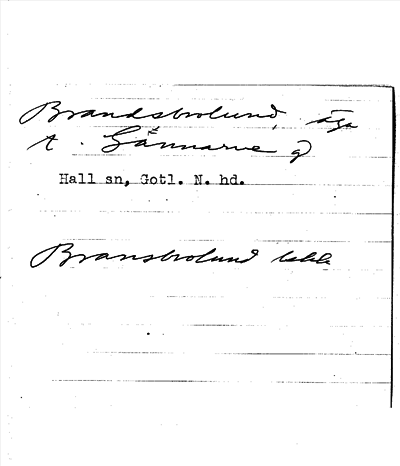 Brandsbrolund, äga
t. Gännarve g
Hall sn, Gotl. N. hd.
Bransbrolund